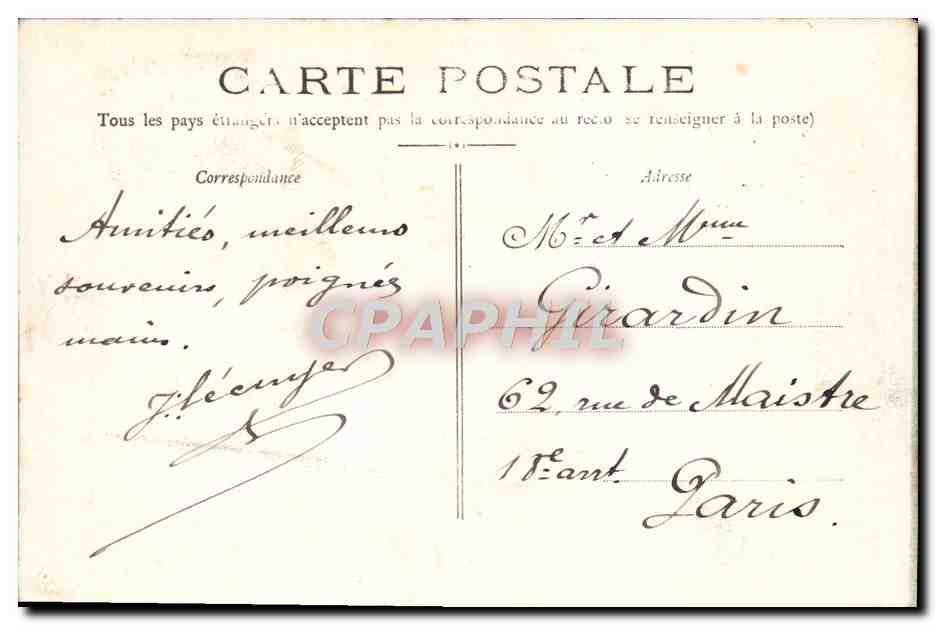 CARTE POSTALE
Tous les pays étrangers n'acceptent pas la correspondance au recto se renseigner à la poste)
Correspondance
Amitiés, meilleurs
souvenirs, poignées
mains.
J. Lécuyer
Adresse
Mr et Mme
Girardin
62, rue de Maistre
18e arrt.
Paris.
CPAPHIL